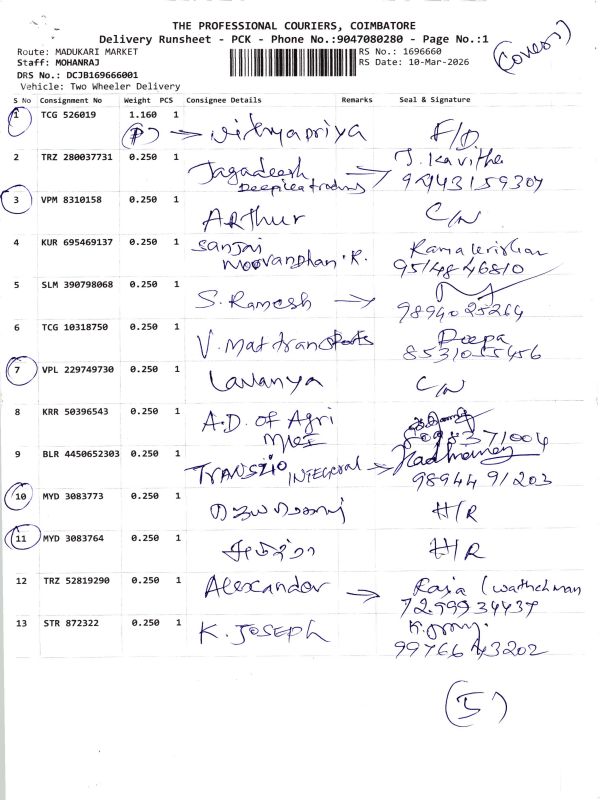 THE PROFESSIONAL COURIERS, COIMBATORE
Delivery Runsheet - PCK - Phone No.:9047080280 - Page No.:1
Route: MADUKARI MARKET RS No.: 1696660
Staff: MOHANRAJ RS Date: 10-Mar-2026
DRS No.: DCJB169666001
Vehicle: Two Wheeler Delivery
(Cover)
S No Consignment No Weight PCS Consignee Details Remarks Seal & Signature
1 TCG 526019 1.160 1 (P) → vithyapriya F/D
2 TRZ 280037731 0.250 1 Jagadeesh J. Kavitha
Deepikatradins → 9
3 VPM 8310158 0.250 1 ARthur C/N
4 KUR 695469137 0.250 1 Sanjai
Moovandhan.R. 9514846810
5 SLM 390798068 0.250 1 S. Ramesh → 9894025264
6 TCG 10318750 0.250 1 V. Mattransports Deepa
8531055456
7 VPL 229749730 0.250 1 Lavanya C/N
8 KRR 50396543 0.250 1 A.D. of Agri
9 BLR 4450652303 0.250 1 TRANSZIO INTEGERAL →
98944 91203
10 MYD 3083773 0.250 1 H/R
11 MYD 3083764 0.250 1 H/R
12 TRZ 52819290 0.250 1 Alexandor → Raja (wathchman
7299934439
13 STR 872322 0.250 1 K. JOSEPH
9976643202